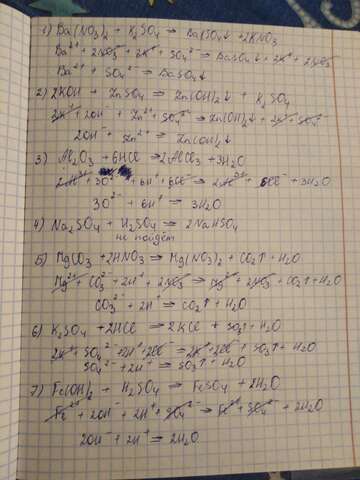 1) Ba(NO₃)₂ + K₂SO₄ ⇒ BaSO₄↓ + 2KNO₃
Ba²⁺ + 2NO₃⁻ + 2K⁺ + SO₄²⁻ ⇒ BaSO₄↓ + 2K⁺ + 2NO₃⁻
Ba²⁺ + SO₄²⁻ ⇒ BaSO₄↓
2) 2KOH + ZnSO₄ ⇒ Zn(OH)₂↓ + K₂SO₄
2K⁺ + 2OH⁻ + Zn²⁺ + SO₄²⁻ ⇒ Zn(OH)₂↓ + 2K⁺ + SO₄²⁻
2OH⁻ + Zn²⁺ ⇒ Zn(OH)₂↓
3) Al₂O₃ + 6HCl ⇒ 2AlCl₃ + 3H₂O
2Al³⁺ + 3O²⁻ + 6H⁺ + 6Cl⁻ ⇒ 2Al³⁺ + 6Cl⁻ + 3H₂O
3O²⁻ + 6H⁺ ⇒ 3H₂O
4) Na₂SO₄ + H₂SO₄ ⇒ 2NaHSO₄
не пойдёт
5) MgCO₃ + 2HNO₃ ⇒ Mg(NO₃)₂ + CO₂↑ + H₂O
Mg²⁺ + CO₃²⁻ + 2H⁺ + 2NO₃⁻ ⇒ Mg²⁺ + 2NO₃⁻ + CO₂↑ + H₂O
CO₃²⁻ + 2H⁺ ⇒ CO₂↑ + H₂O
6) K₂SO₄ + 2HCl ⇒ 2KCl + SO₃↑ + H₂O
2K⁺ + SO₄²⁻ + 2H⁺ + 2Cl⁻ ⇒ 2K⁺ + 2Cl⁻ + SO₃↑ + H₂O
SO₄²⁻ + 2H⁺ ⇒ SO₃↑ + H₂O
7) Fe(OH)₂ + H₂SO₄ ⇒ FeSO₄ + 2H₂O
Fe²⁺ + 2OH⁻ + 2H⁺ + SO₄²⁻ ⇒ Fe²⁺ + SO₄²⁻ + 2H₂O
2OH⁻ + 2H⁺ ⇒ 2H₂O